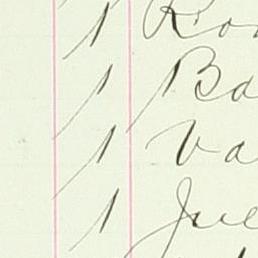 1 Ro
1 Ba
1 Va
1 Jue